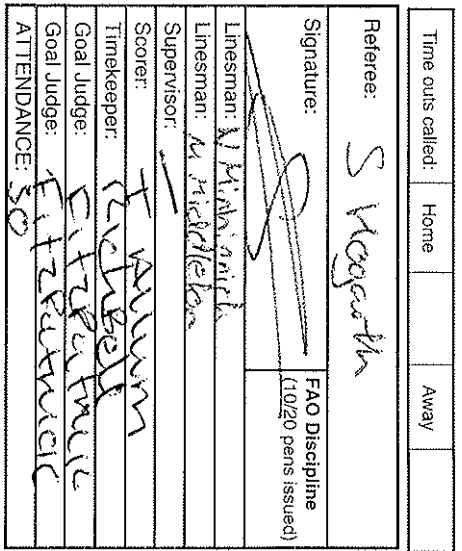 Time outs called: Home Away
Referee: S Hogarth
Signature:
FAO Discipline
(10/20 pens issued)
Linesman: N
Linesman: N Middleton
Supervisor: /
Scorer: I Allum
Timekeeper: RichBell
Goal Judge: Fitzpatrick
Goal Judge: Fitzpatrick
ATTENDANCE: 30